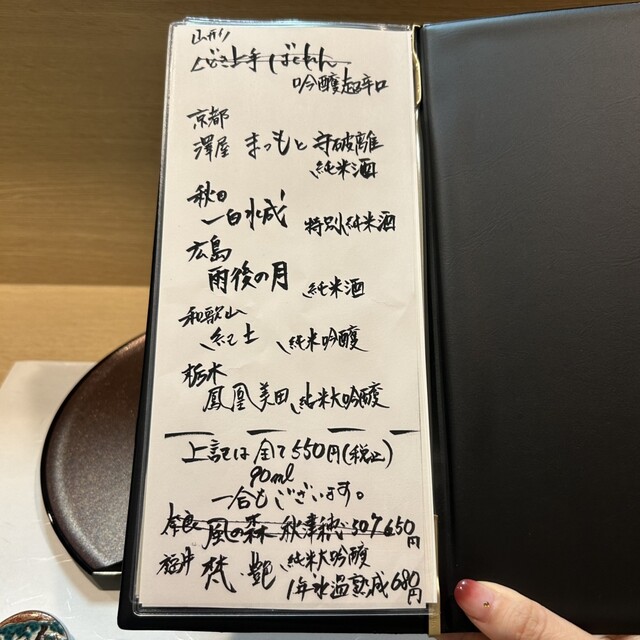 山形
くどき上手 ばくれん
吟醸超辛口
京都
澤屋 まつもと 守破離
純米酒
秋田
一白水成 特別純米酒
広島
雨後の月 純米酒
和歌山
紀土 純米吟醸
栃木
鳳凰美田 純米大吟醸
上記は全て550円(税込)
90ml
一合もございます。
奈良 風の森 秋津穂 507 650円
福井 梵 艶 純米大吟醸
1年氷温熟成 680円